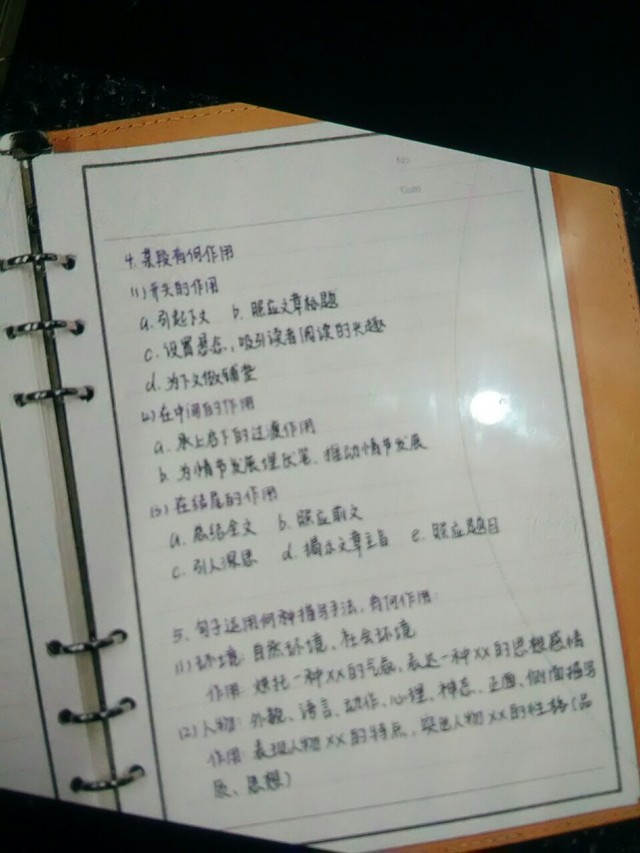 No
Date
4. 某段有何作用
(1) 开头的作用
a. 引起下文 b. 照应文章标题
c. 设置悬念，吸引读者阅读的兴趣
d. 为下文做铺垫
(2) 在中间的作用
a. 承上启下的过渡作用
b. 为情节发展埋伏笔、推动情节发展
(3) 在结尾的作用
a. 总结全文 b. 照应前文
c. 引人深思 d. 揭示文章主旨 e. 照应题目
5. 句子运用何种描写手法，有何作用：
(1) 环境：自然环境、社会环境
作用：烘托一种XX的气氛，表达一种XX的思想感情
(2) 人物：外貌、语言、动作、心理、神态、正面、侧面描写
作用：表现人物XX的特点，突出人物XX的性格（品
质、思想）